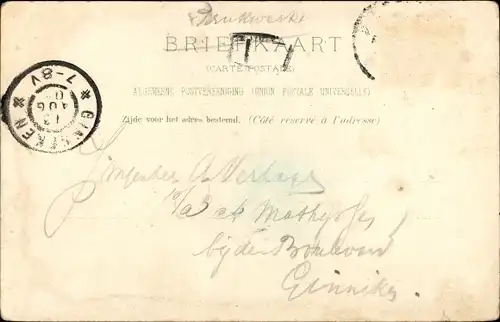 Drukwerk
BRIEFKAART
(CARTE POSTALE)
ALGEMEENE POSTVEREENIGING (UNION POSTALE UNIVERSELLE)
Zijde voor het adres bestemd. (Côté réservé à l'adresse)
GINNEKEN
13 AUG
7-8V
A. Verhage
p/a
bij de Boulevard
Ginneken